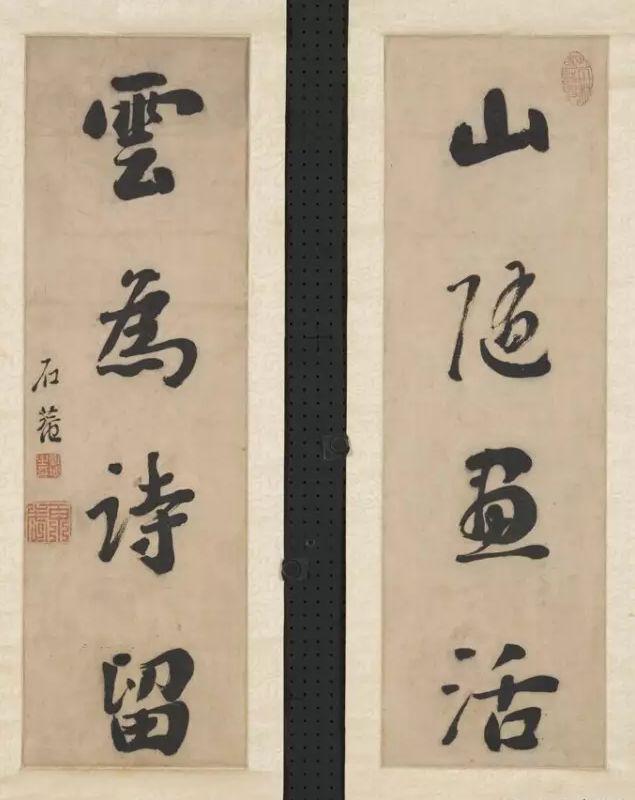 山隨畫活
雲為詩留
石菴